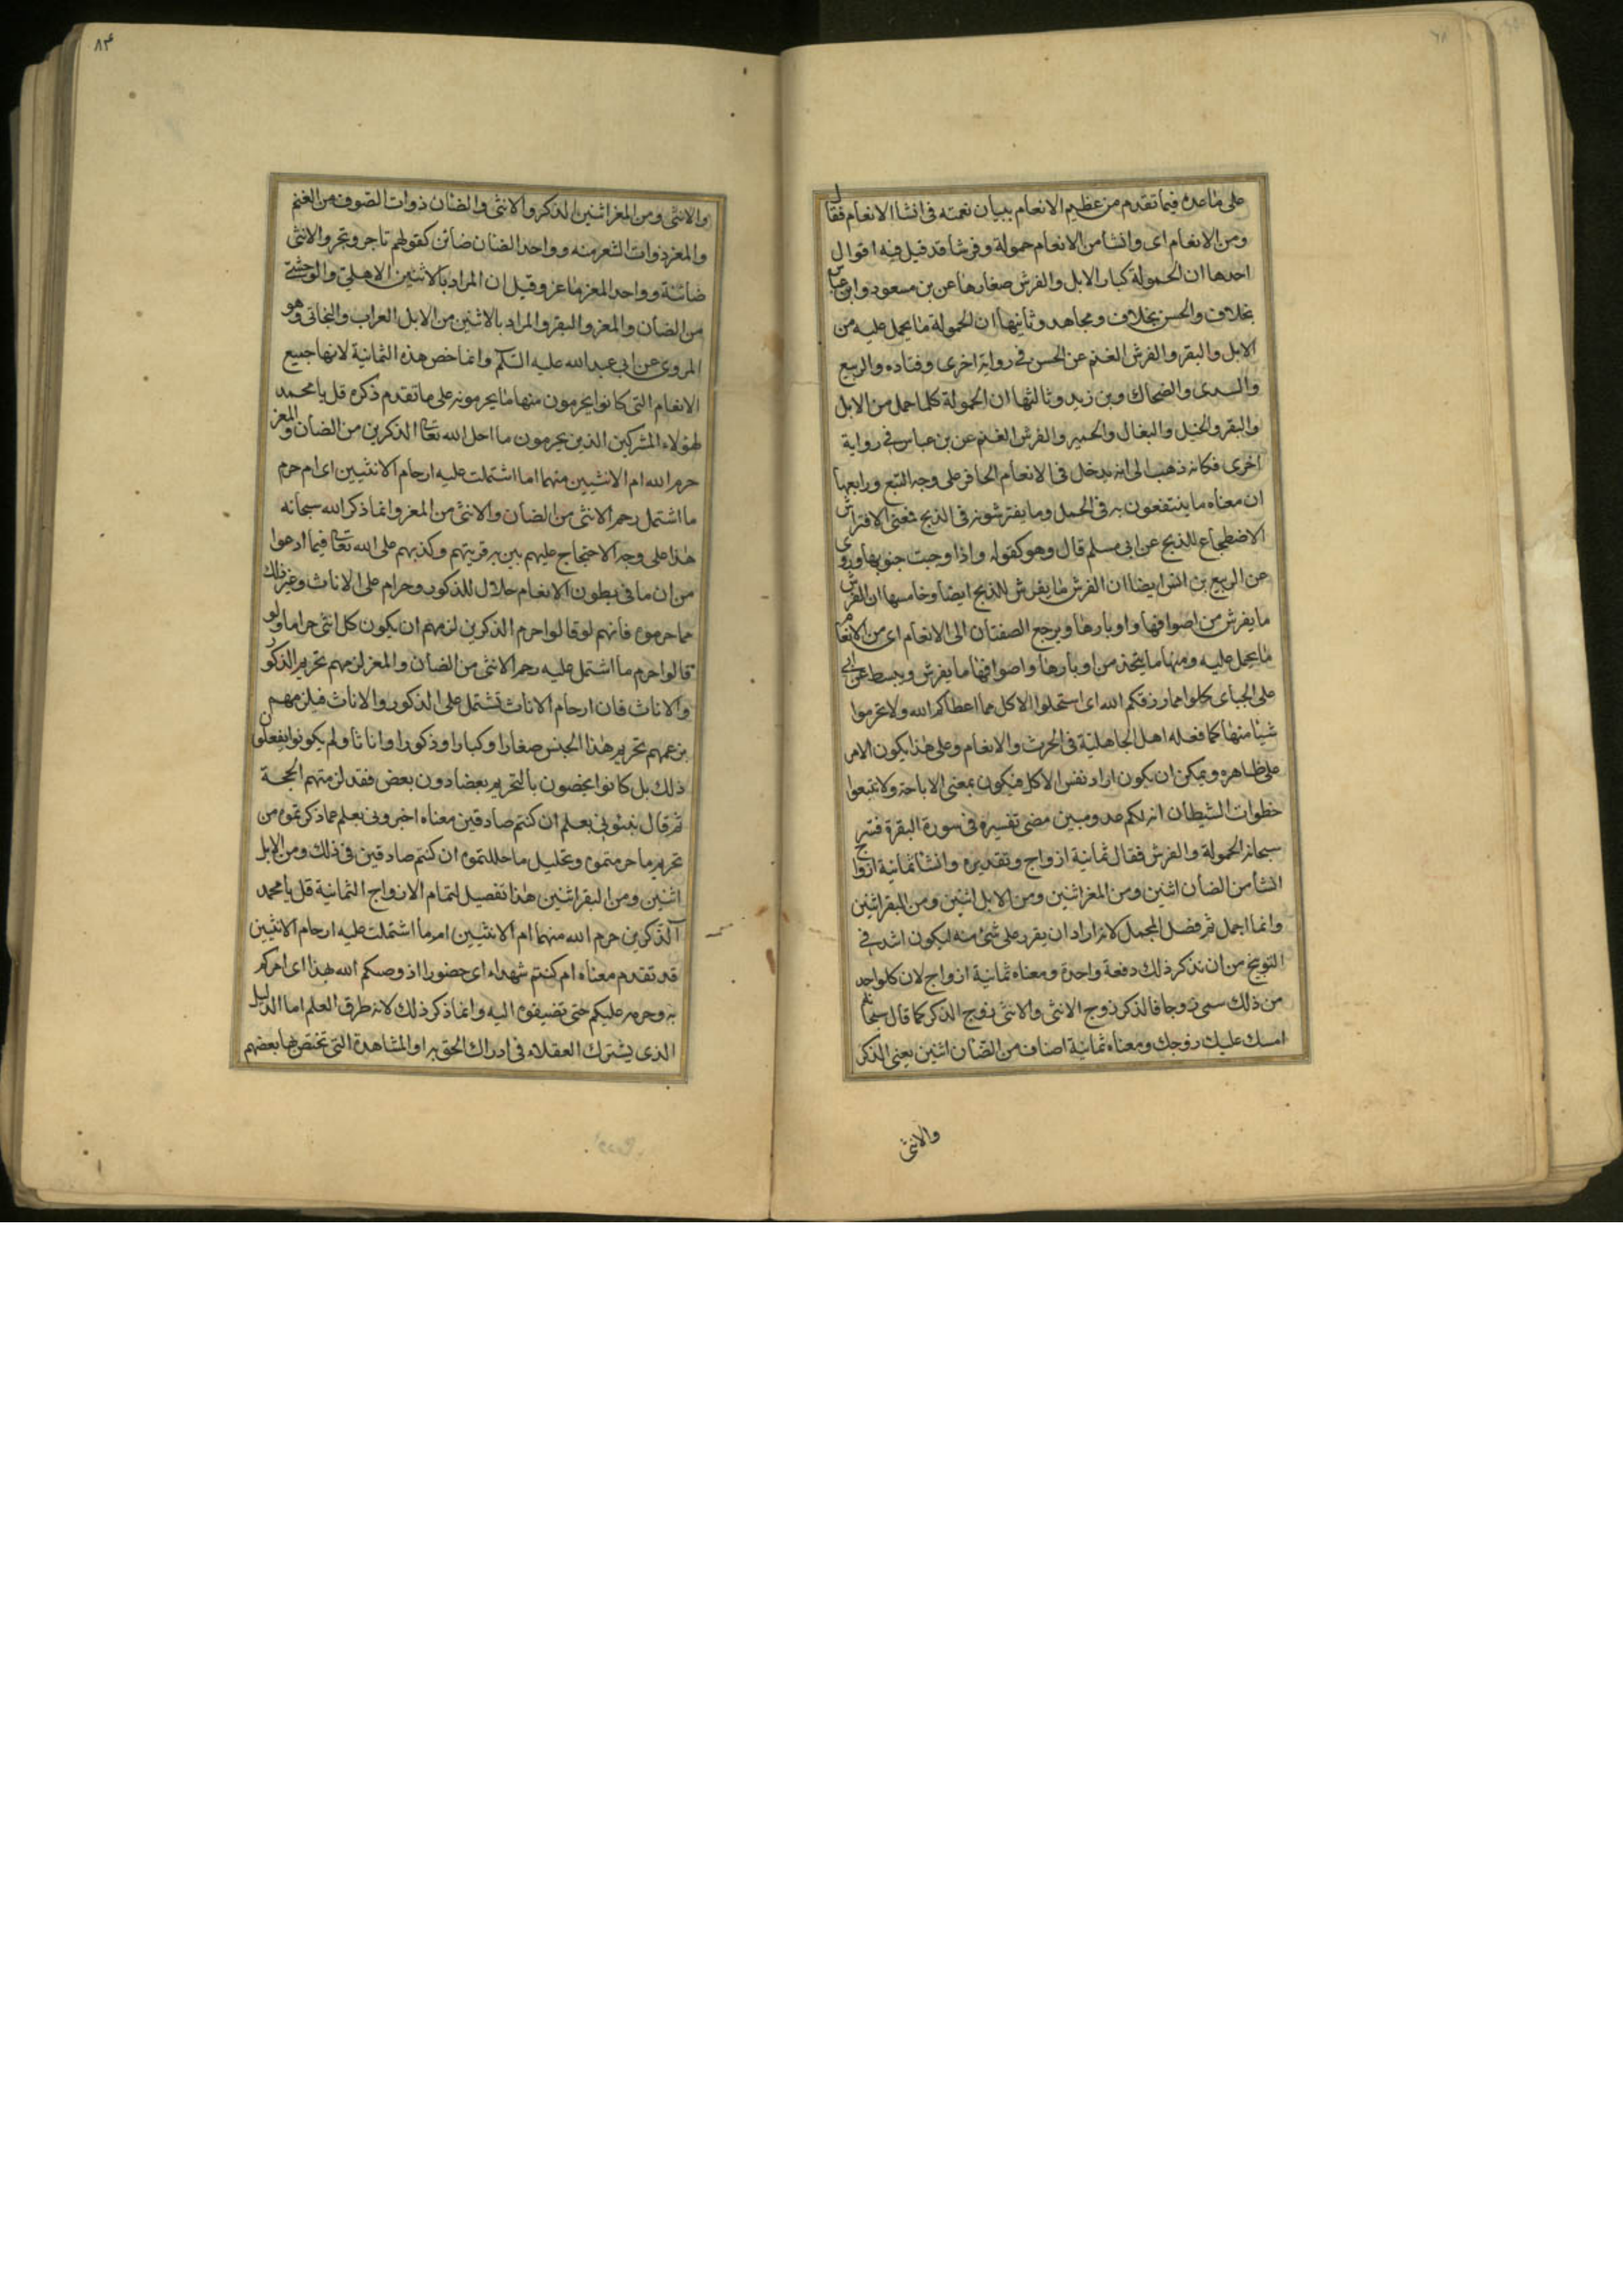 على ما عده فيما تقدم من عظيم الانعام ببيان نعمته فى انشا الانعام فقال
ومن الانعام اى وانشا من الانعام حمولة وفرشا قد قيل فيه اقوال
احدها ان الحمولة كبار الابل والفرش صغارها عن بن مسعود وابن عباس
بخلاف والحسن بخلاف ومجاهد وثانيها ان الحمولة ما يحمل عليه من
الابل والبقر والفرش الغنم عن الحسن فى رواية اخرى وقتاده والربيع
والسدى والضحاك وبن زيد وثالثها ان الحمولة كلما حمل من الابل
والبقر والخيل والبغال والحمير والفرش الغنم عن بن عباس فى رواية
اخرى فكانه ذهب الى انه يدخل فى الانعام الحافر على وجه التبع ورابعها
ان معناه ما ينتفعون به فى الحمل وما يفترشونه فى الذبح فمعنى الافتراش
الاضطجاع للذبح عن ابى مسلم قال وهو كقوله واذا وجبت جنوبها وروى
عن الربيع بن انس ايضا ان الفرش ما يفرش للذبح ايضا وخامسها ان الفرش
ما يفرش من اصوافها واوبارها ويرجع الصفتان الى الانعام اى من الانعام
ما يحمل عليه ومنها ما يتخذ من اوبارها واصوافها ما يفرش ويبسط عن ابى
على الجباى كلوا مما رزقكم الله اى استحلوا الاكل مما اعطاكم الله ولا تحرموا
شيئا منها كما فعله اهل الجاهلية فى الحرث والانعام وعلى هذا يكون الامر
على ظاهره ويمكن ان يكون اراد نفس الاكل فيكون بمعنى الاباحة ولا تتبعوا
خطوات الشيطان انه لكم عدو مبين مضى تفسيره فى سورة البقرة فسر
سبحانه الحمولة والفرش فقال ثمانية ازواج وتقديره وانشا ثمانية ازواج
انشا من الضان اثنين ومن المعز اثنين ومن الابل اثنين ومن البقر اثنين
وانما اجمل ثم فصل المجمل لانه اراد ان يقرر على شئ منه ليكون اشد فى
التوبيخ من ان نذكر ذلك دفعة واحدة ومعناه ثمانية ازواج لان كل واحد
من ذلك سمى زوجا فالذكر زوج الانثى والانثى زوج الذكر كما قال سبحانه
امسك عليك زوجك ومعناه ثمانية اصناف من الضان اثنين يعنى الذكر
والانثى
٨٤
والانثى ومن المعز اثنين الذكر والانثى والضان ذوات الصوف من الغنم
والمعز ذوات الشعر منه وواحد الضان ضائن كقولهم تاجر وتجر والانثى
ضائنة وواحد المعز ماعز وقيل ان المراد بالاثنين الاهلى والوحشى
من الضان والمعز والبقر والمراد بالاثنين من الابل العراب والبخاتى وهو
المروى عن ابى عبد الله عليه السلم وانما خص هذه الثمانية لانها جميع
الانعام التى كانوا يحرمون منها ما يحرمونه على ما تقدم ذكره قل يا محمد
لهؤلاء المشركين الذين يحرمون ما احل الله تعالى الذكرين من الضان والمعز
حرم الله ام الانثيين منهما اما اشتملت عليه ارحام الانثيين اى ام حرم
ما اشتمل رحم الانثى من الضان والانثى من المعز وانما ذكر الله سبحانه
هذا على وجه الاحتجاج عليهم بين به فريتهم وكذبهم على الله تعالى فيما ادعوا
من ان ما فى بطون الانعام حلال للذكور وحرام على الاناث وغير ذلك
مما حرموه فانهم لو قالوا حرم الذكرين لزمهم ان يكون كل انثى حراما ولو
قالوا حرم ما اشتمل عليه رحم الانثى من الضان والمعز لزمهم تحريم الذكور
والاناث فان ارحام الاناث تشتمل على الذكور والاناث فيلزمهم
بزعمهم تحريم هذا الجنس صغارا وكبارا وذكورا واناثا ولم يكونوا يفعلون
ذلك بل كانوا يخصون بالتحريم بعضا دون بعض فقد لزمتهم الحجة
ثم قال نبئونى بعلم ان كنتم صادقين معناه اخبرونى بعلم عما ذكرتموه من
تحريم ما حرمتموه وتحليل ما حللتموه ان كنتم صادقين فى ذلك ومن الابل
اثنين ومن البقر اثنين هذا تفصيل لتمام الازواج الثمانية قل يا محمد
آلذكرين حرم الله منهما ام الانثيين ام ما اشتملت عليه ارحام الانثيين
قد تقدم معناه ام كنتم شهداء اى حضورا اذ وصيكم الله بهذا اى امركم
به وحرمه عليكم حتى تضيفوه اليه وانما ذكر ذلك لانه طرق العلم اما الدليل
الذى يشترك العقلاء فى ادراك الحق به او المشاهدة التى تختص بها بعضهم